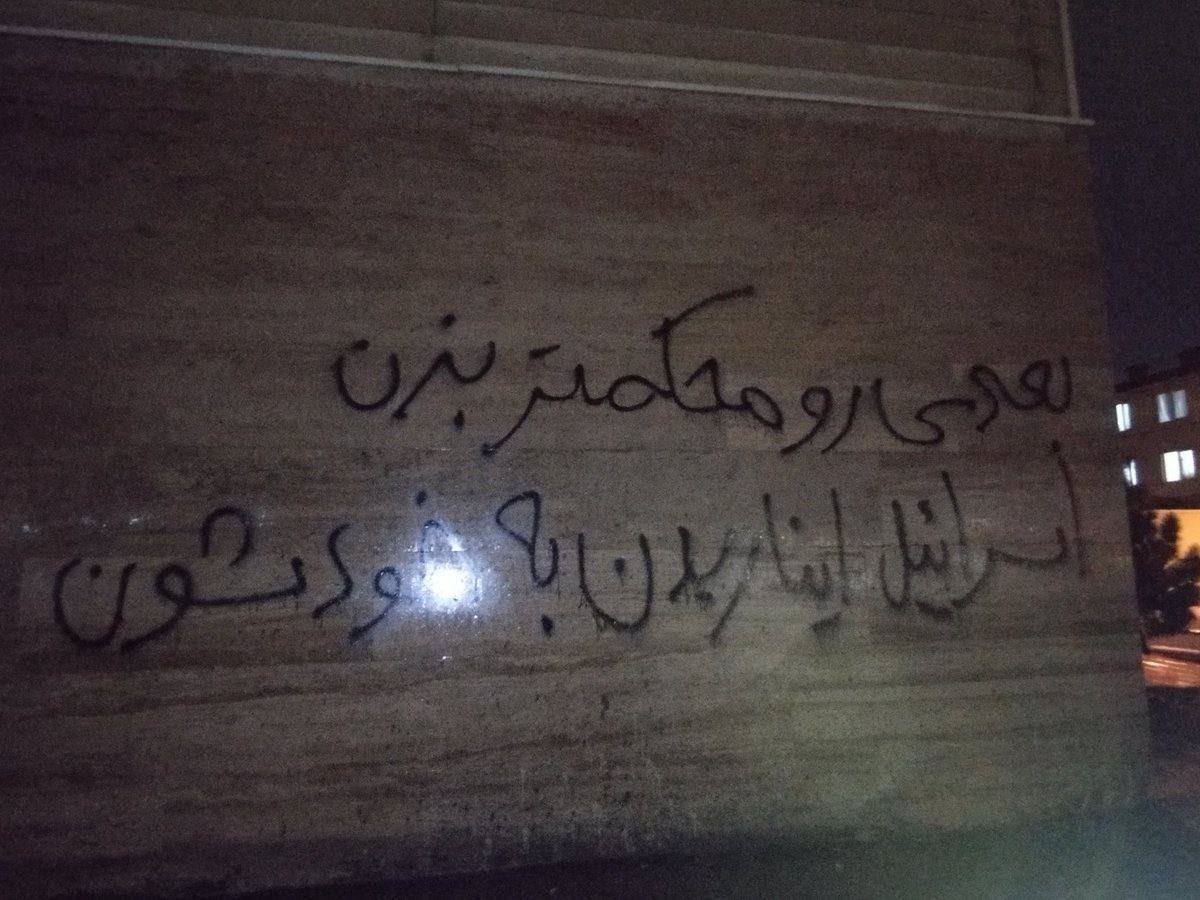 بعدی رو محکمتر بزن
اسرائیل اینا ریدن به خودشون